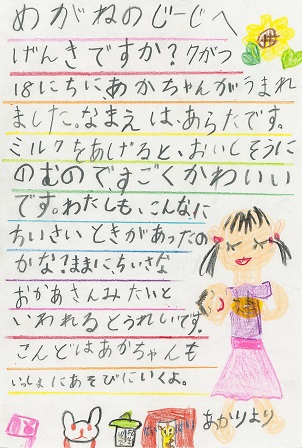 めがねのじーじへ
げんきですか？7がつ
18にちに、あかちゃんがうまれ
ました。なまえは、あらたです。
ミルクをあげると、おいしそうに
のむので、すごくかわいい
です。わたしも、こんなに
ちいさいときがあったの
かな？ままに、ちいさな
おかあさんみたいと
いわれるとうれしいです。
こんどはあかちゃんも
いっしょにあそびにいくよ。
あかりより